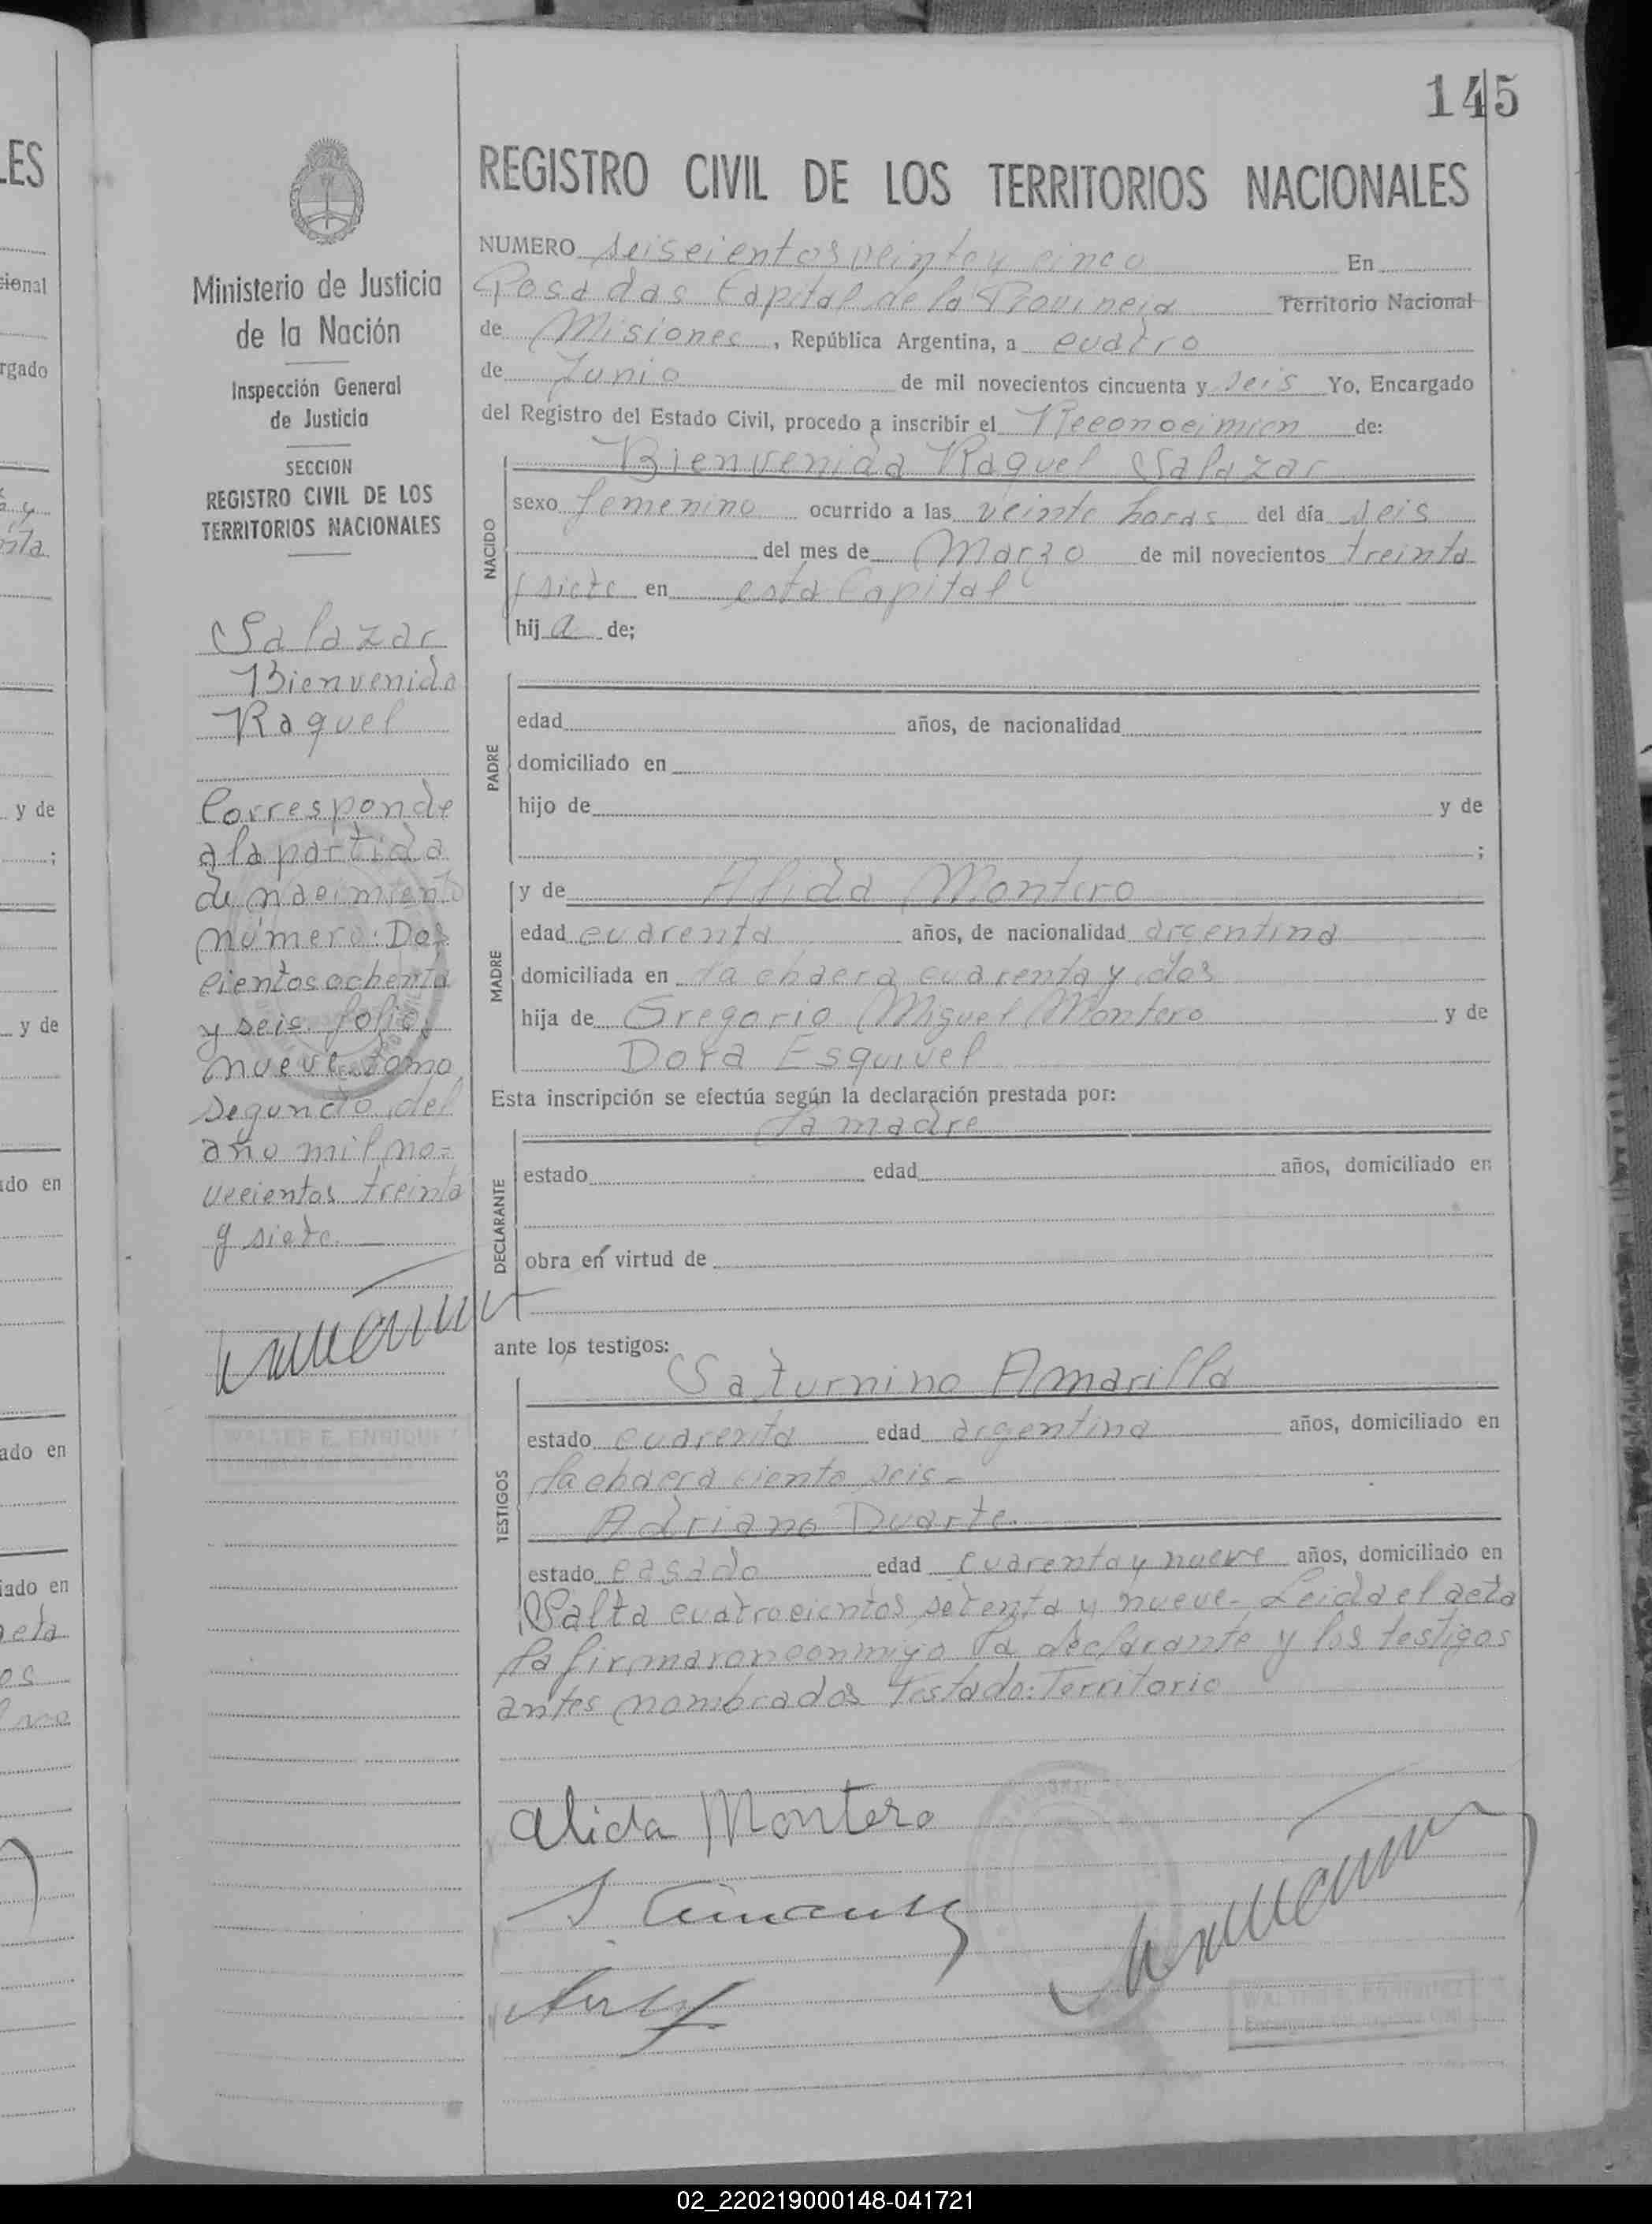 145
REGISTRO CIVIL DE LOS TERRITORIOS NACIONALES
Ministerio de Justicia
de la Nación
Inspección General
de Justicia
SECCION
REGISTRO CIVIL DE LOS
TERRITORIOS NACIONALES
Salazar
Bienvenida
Raquel
Corresponde
a la partida
de nacimiento
número: Dos
cientos ochenta
y seis folio
nueve tomo
segundo del
año mil no=
vecientos treinta
y siete.
WALTER E. ENRIQUEZ
NUMERO seiscientos veinte y cinco En
Posadas Capital de la Provincia Territorio Nacional
de Misiones, República Argentina, a cuatro
de Junio de mil novecientos cincuenta y seis Yo, Encargado
del Registro del Estado Civil, procedo a inscribir el Reconocimien de:
Bienvenida Raquel Salazar
NACIDO
sexo femenino ocurrido a las veinte horas del día seis
del mes de Marzo de mil novecientos treinta
y siete en esta Capital
hij a de;
PADRE
edad años, de nacionalidad
domiciliado en
hijo de y de
;
MADRE
y de Alida Montero
edad cuarenta años, de nacionalidad argentina
domiciliada en la chacra cuarenta y dos
hija de Gregorio Miguel Montero y de
Dora Esquivel
Esta inscripción se efectúa según la declaración prestada por:
la madre
DECLARANTE
estado edad años, domiciliado en
obra en virtud de
ante los testigos:
TESTIGOS
Saturnino Amarilla
estado cuarenta edad argentina años, domiciliado en
la chacra ciento seis-
Adriano Duarte.
estado casado edad cuarenta y nueve años, domiciliado en
Salta cuatrocientos setenta y nueve- Leida el acta
la firmaron conmigo la declarante y los testigos
antes nombrados Testado: Territorio
Alida Montero
WALTER E. ENRIQUEZ
02_220219000148-041721